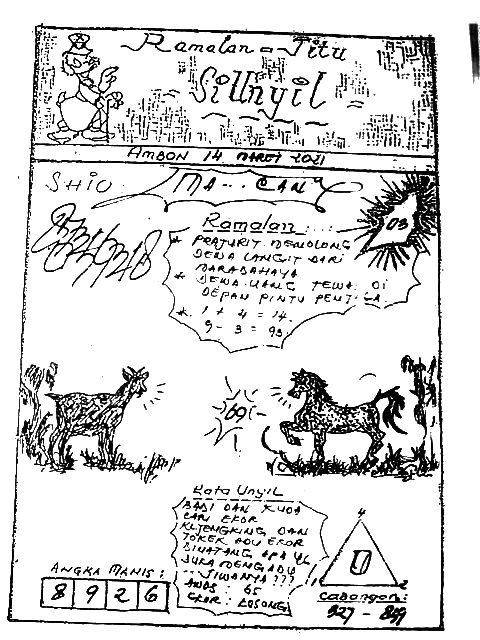 Ramalan - Jitu
Si Unyil
AMBON 14 MARET 2021
SHIO MA... CAN
03
Ramalan...
* PRAJURIT MENOLONG
DEWA LANGIT DARI
MARABAHAYA
* DEWA UANG TEWAS DI
DEPAN PINTU
* 1 + 4 = 14.
9 - 3 = 93.
60
Kata Unyil
BABI DAN KUDA
CARI EKOR
KLJENGKING DAN
TOKEK ADU EKOR
BINATANG APA YG
SUKA MENGADU
JIWANYA ???
EKOR: LOSONG
ANGKA MANIS:
8 9 2 6
4
0
1 2
Cabangan:
327 - 849